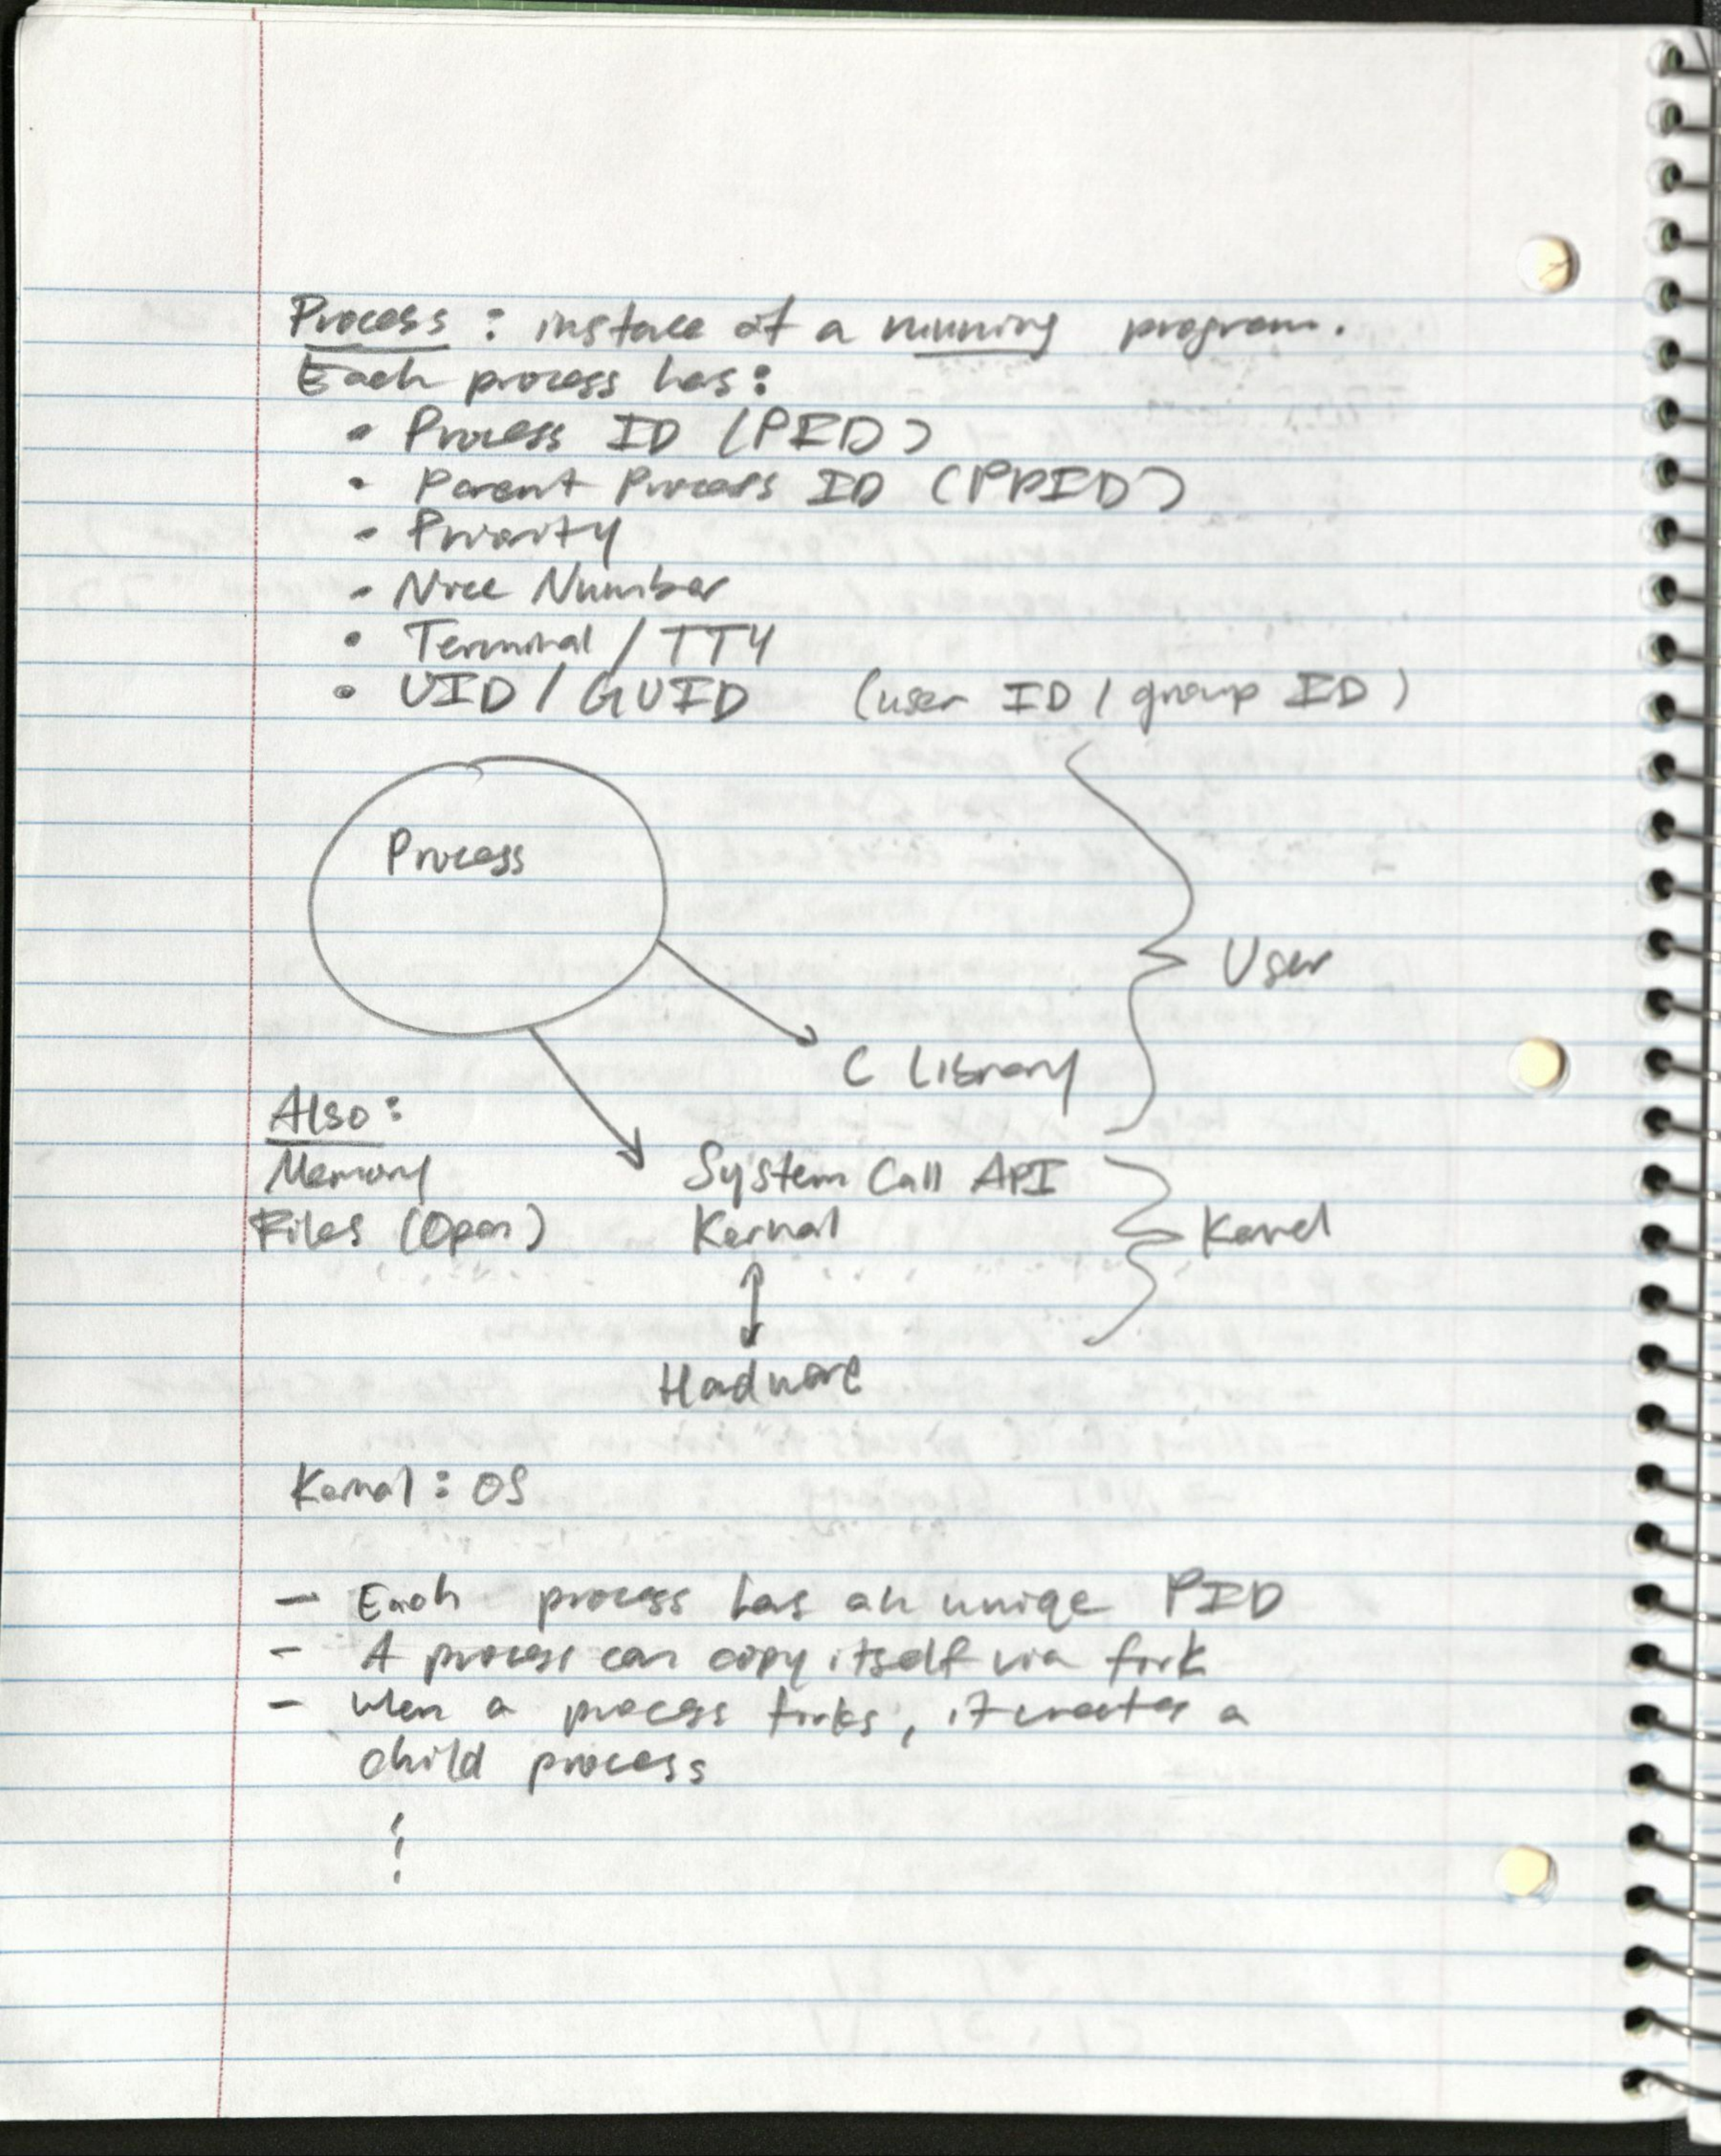 Process : instace of a running program.
Each process has:
• Process ID (PID)
• Parent Process ID (PPID)
• Priority
• Nice Number
• Terminal / TTY
• UID / GUID (user ID / group ID)
Process
User
C Library
Also:
Memory
Files (Open)
System Call API
Kernal
Kernel
Hadware
Kernal : OS
- Each process has an uniqe PID
- A process can copy itself via fork
- When a process forks, it creates a
child process